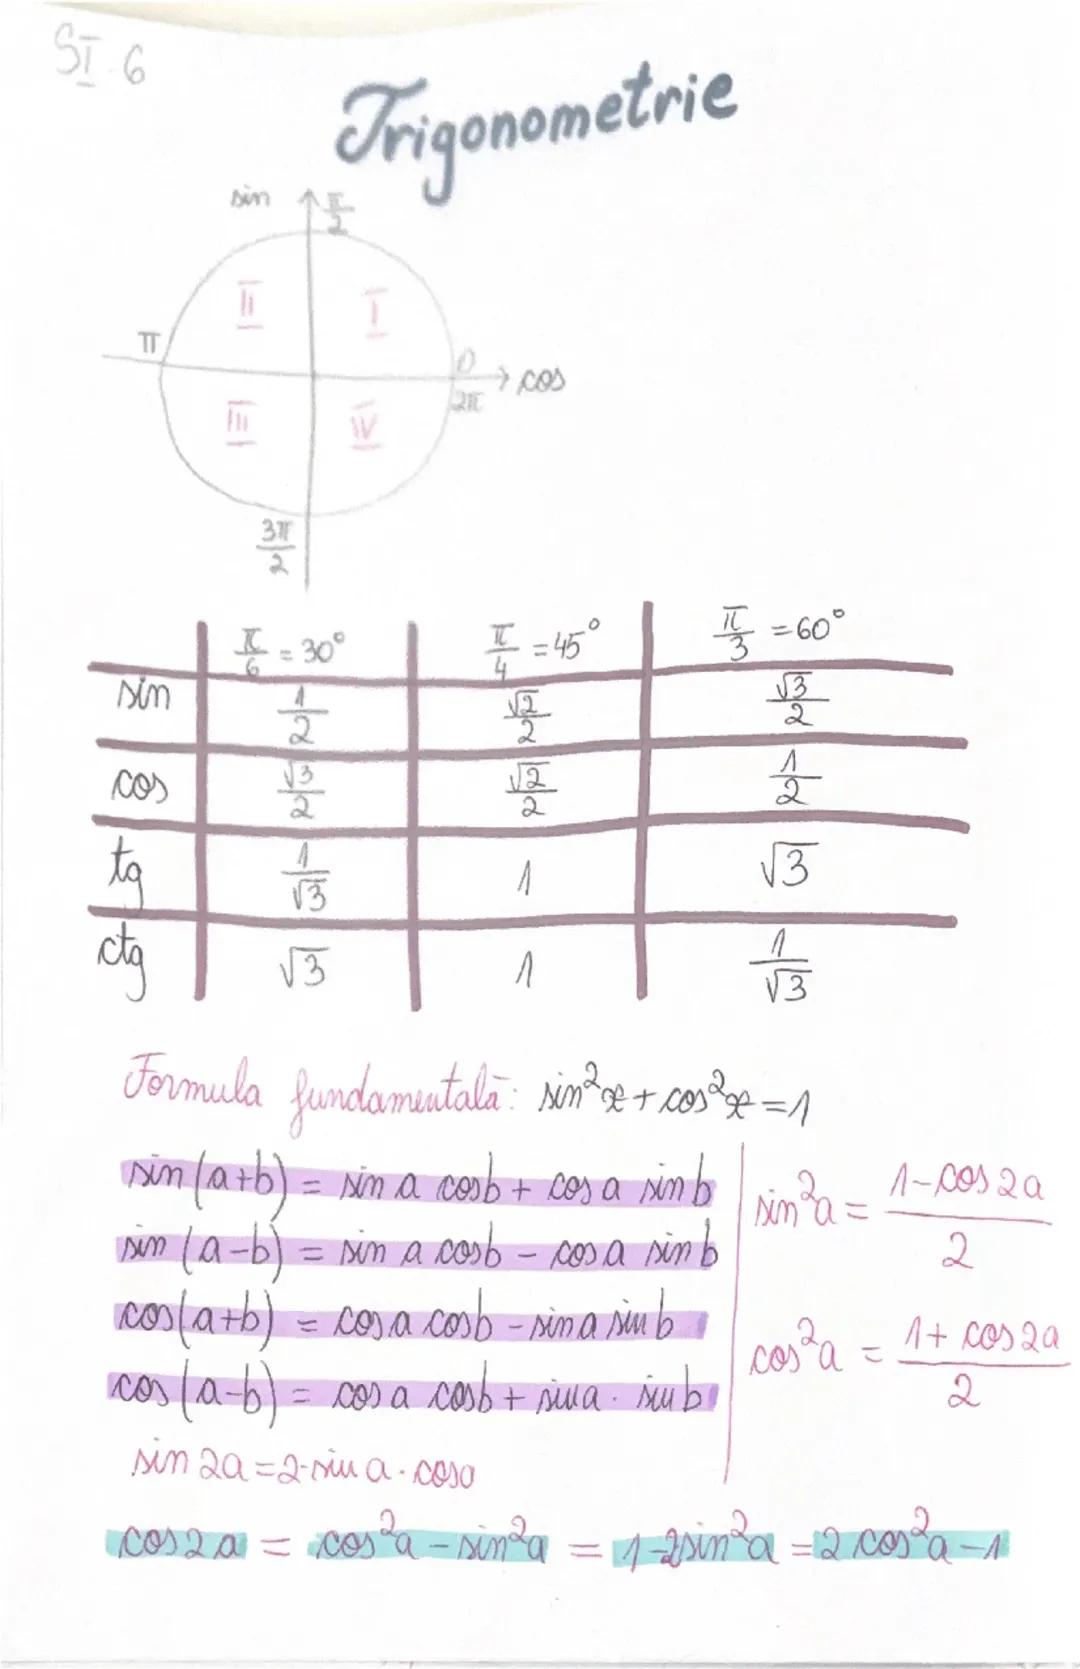 SI.6
Trigonometrie
sin π/2
II I
π 0 cos
2π
III IV
3π/2
π/6 = 30° π/4 = 45° π/3 = 60°
sin 1/2 √2/2 √3/2
cos √3/2 √2/2 1/2
tg 1/√3 1 √3
ctg √3 1 1/√3
Formula fundamentală: sin²x + cos²x = 1
sin(a+b) = sin a cos b + cos a sin b
sin(a-b) = sin a cos b - cos a sin b
cos(a+b) = cos a cos b - sin a sin b
cos(a-b) = cos a cos b + sin a · sin b
sin 2a = 2·sin a · cos a
sin²a = (1-cos 2a)/2
cos²a = (1+cos 2a)/2
cos 2a = cos²a - sin²a = 1-2sin²a = 2cos²a-1